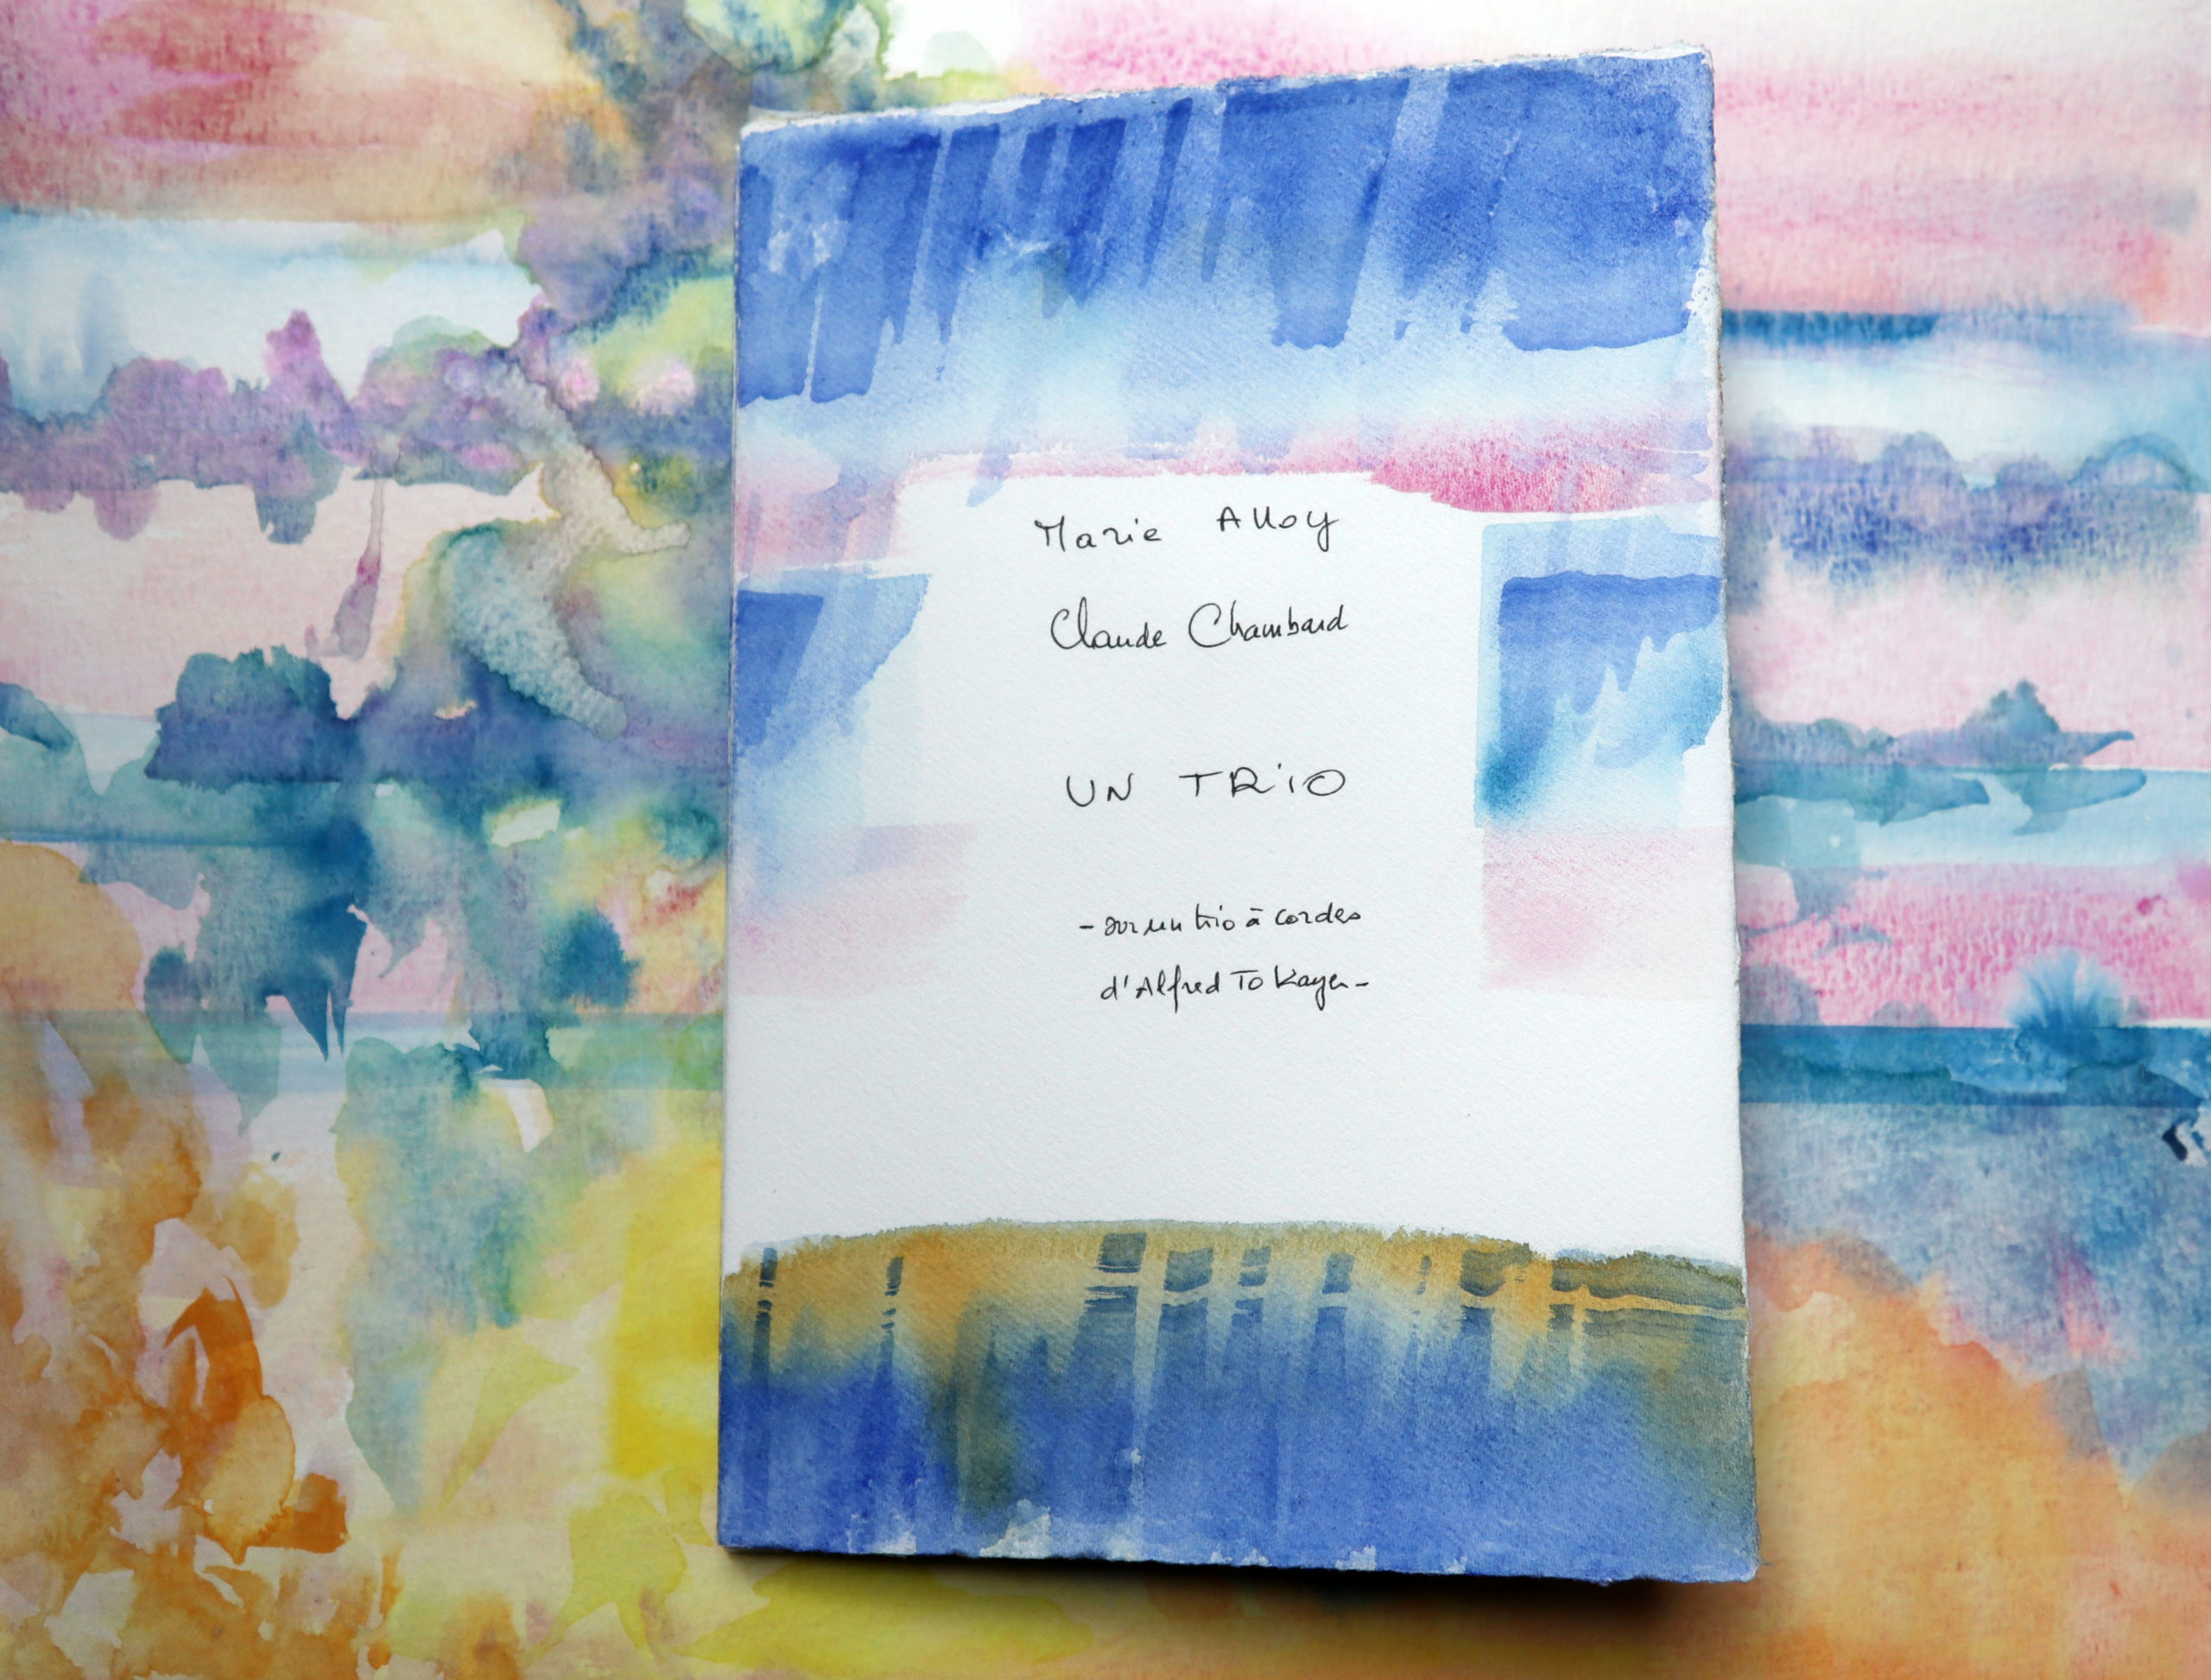 Marie Alloy
Claude Chambard
UN TRIO
- sur un trio à cordes
d'Alfred Tokayer -